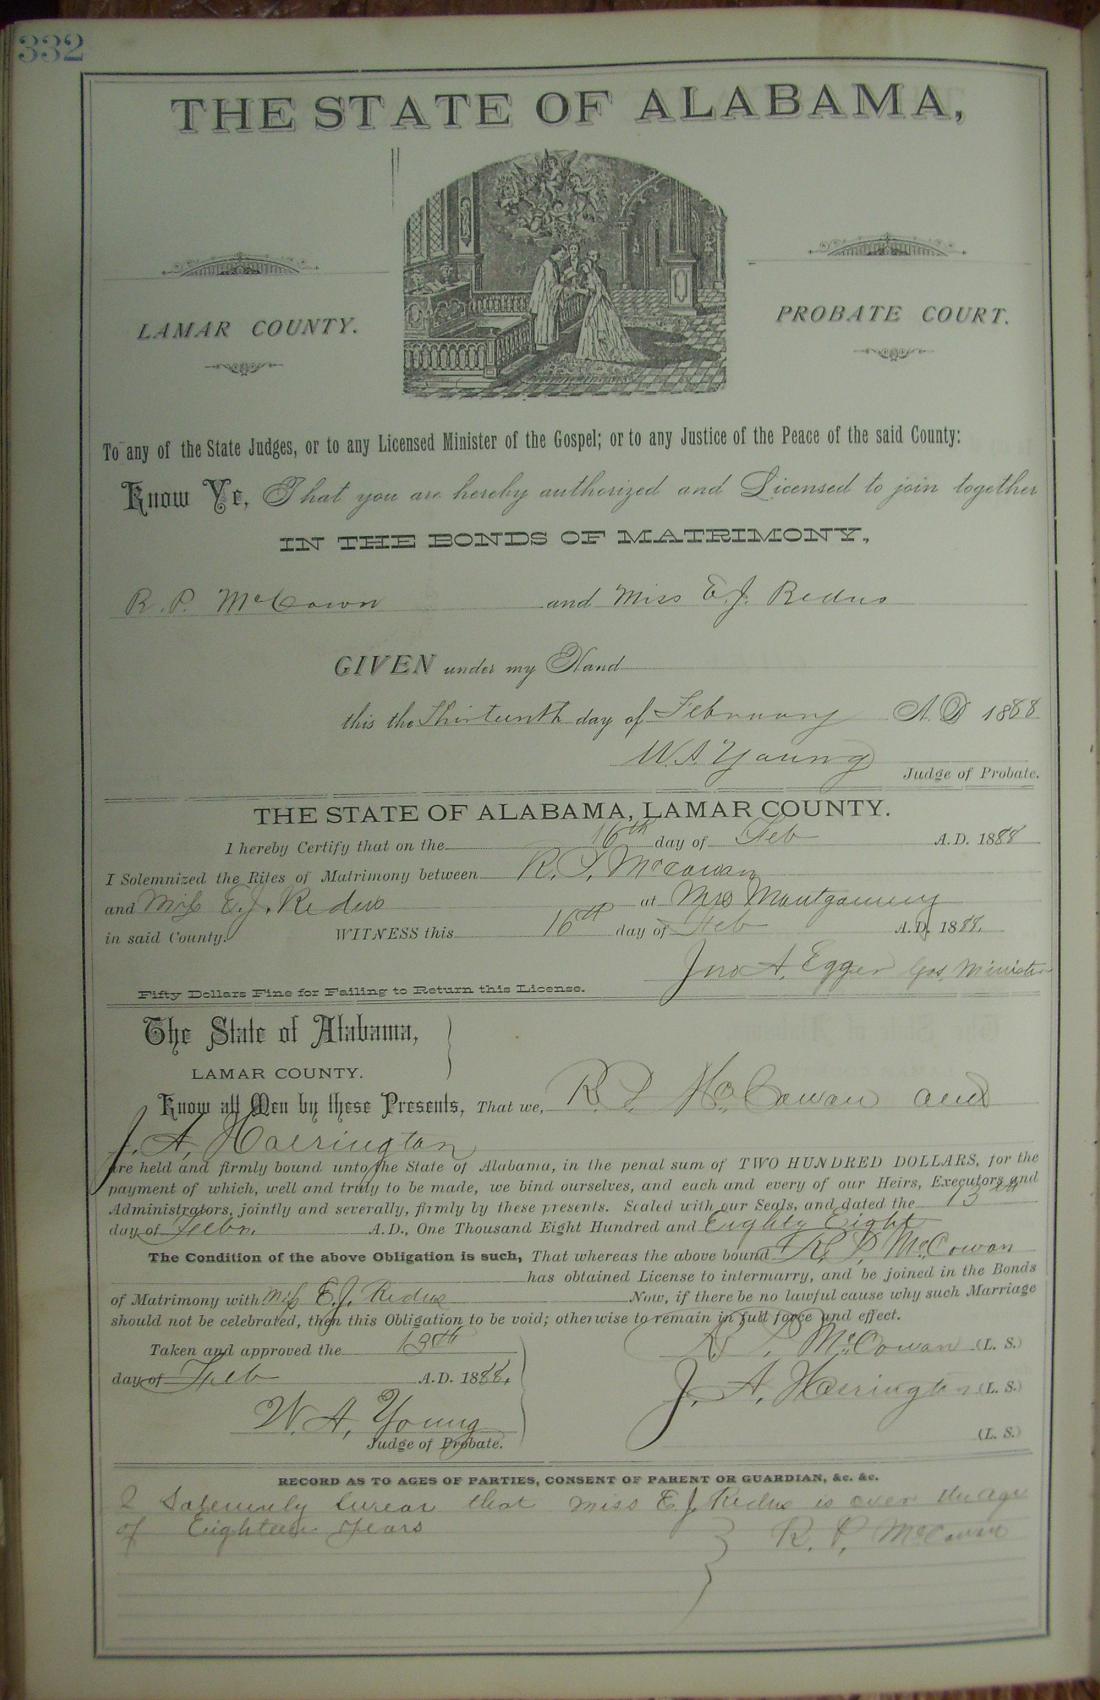 332
THE STATE OF ALABAMA,
LAMAR COUNTY.
PROBATE COURT.
To any of the State Judges, or to any Licensed Minister of the Gospel; or to any Justice of the Peace of the said County:
Know Ye, That you are hereby authorized and Licensed to join together
IN THE BONDS OF MATRIMONY,
R. P. McCown and Miss E. J. Redus
GIVEN under my Hand
this the Thirteenth day of February A. D 1888
W. A. Young
Judge of Probate.
THE STATE OF ALABAMA, LAMAR COUNTY.
I hereby Certify that on the 16th day of Feb A. D. 1888
I Solemnized the Rites of Matrimony between R. P. McCowan
and Miss E. J. Redus at Mrs Montgomery
in said County. WITNESS this 16th day of Feb A. D. 1888.
Jno A. Egger Gos Minister
Fifty Dollars Fine for Failing to Return this License.
The State of Alabama,
LAMAR COUNTY.
Know all Men by these Presents, That we, R. P. McCowan and
J. A. Harrington
are held and firmly bound unto the State of Alabama, in the penal sum of TWO HUNDRED DOLLARS, for the
payment of which, well and truly to be made, we bind ourselves, and each and every of our Heirs, Executors and
Administrators, jointly and severally, firmly by these presents. Sealed with our Seals, and dated the 13th
day of Febr. A. D., One Thousand Eight Hundred and Eighty Eight
The Condition of the above Obligation is such, That whereas the above bound R. P. McCowan
has obtained License to intermarry, and be joined in the Bonds
of Matrimony with Miss E. J. Redus Now, if there be no lawful cause why such Marriage
should not be celebrated, then this Obligation to be void; otherwise to remain in full force and effect.
Taken and approved the 13th
day of Feb A. D. 1888.
W. A. Young
Judge of Probate.
R. P. McCowan (L. S.)
J. A. Harrington (L. S.)
(L. S.)
RECORD AS TO AGES OF PARTIES, CONSENT OF PARENT OR GUARDIAN, &c. &c.
I Solemnly Swear that Miss E. J. Redus is over the age
of Eighteen years
R. P. McCowan